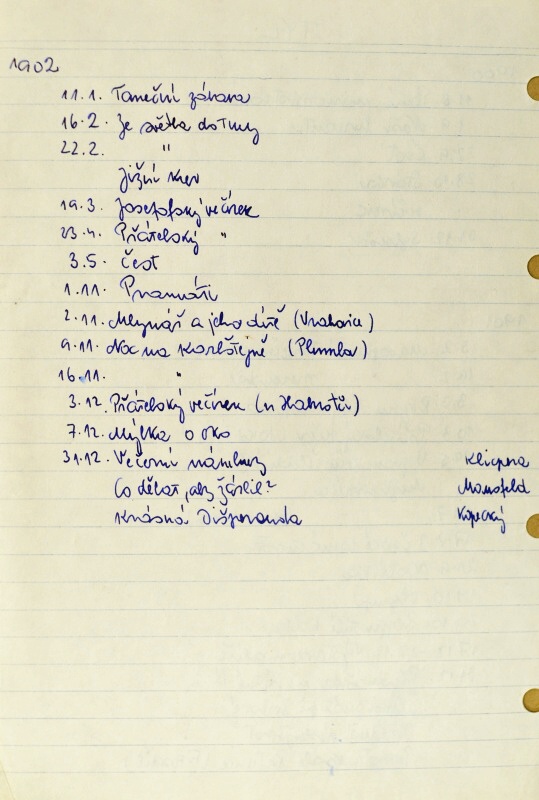 1902
11.1. Taneční zábava
16.2. Je světla do tmy
22.2. "
Jižní krev
19.3. Josefský večírek
23.4. Přátelský "
3.5. Čest
1.11. Pramáti
2.11. Mlynář a jeho dítě (Vrahovice)
9.11. Noc na Karlštejně (Plumlov)
16.11. "
3.12. Přátelský večírek (u Hamotů)
7.12. Mýlka o oko
31.12. Večerní námluvy Klicpera
Co dělat, aby žárlil? Mansfeld
Krásná Dišperanda Kopecký